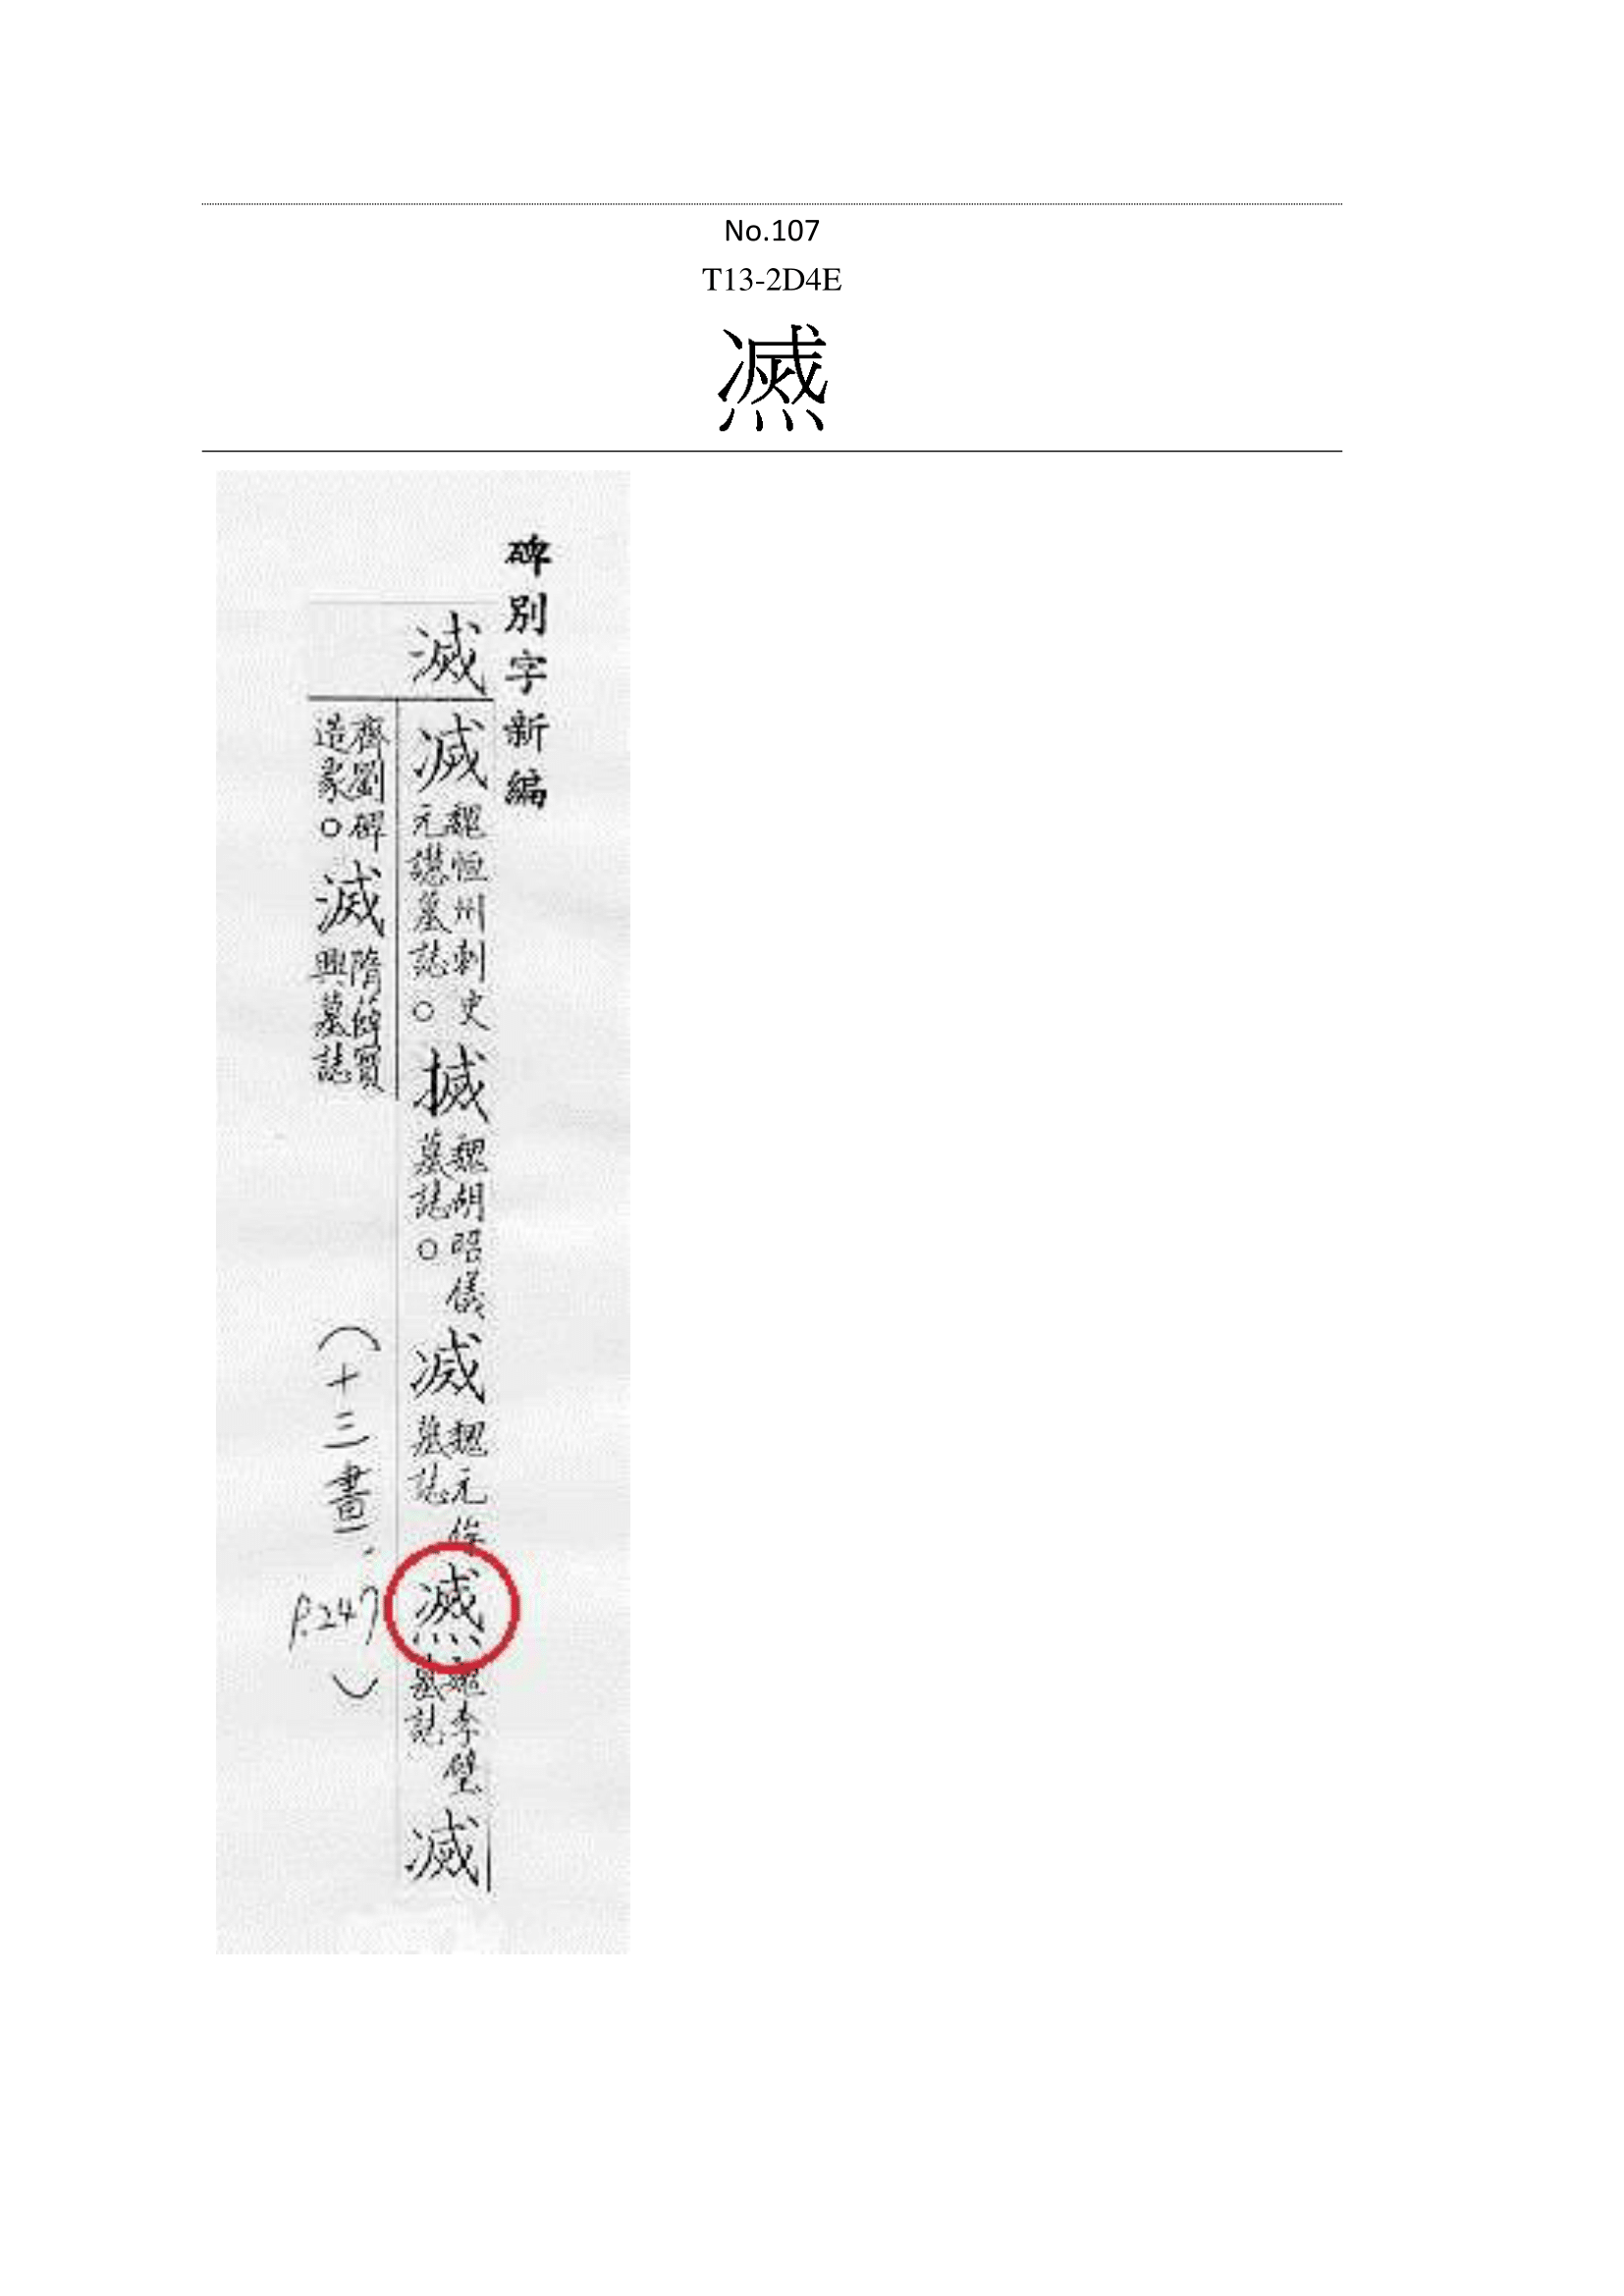 No.107
T13-2D4E
碑別字新編
滅
㓕魏恒州刺史元譿墓誌○搣魏胡昭儀墓誌○㓕魏元侔墓誌魏李璧墓誌㓕
齊劉碑造象○滅隋薛寶興墓誌
(十三畫, P.247)